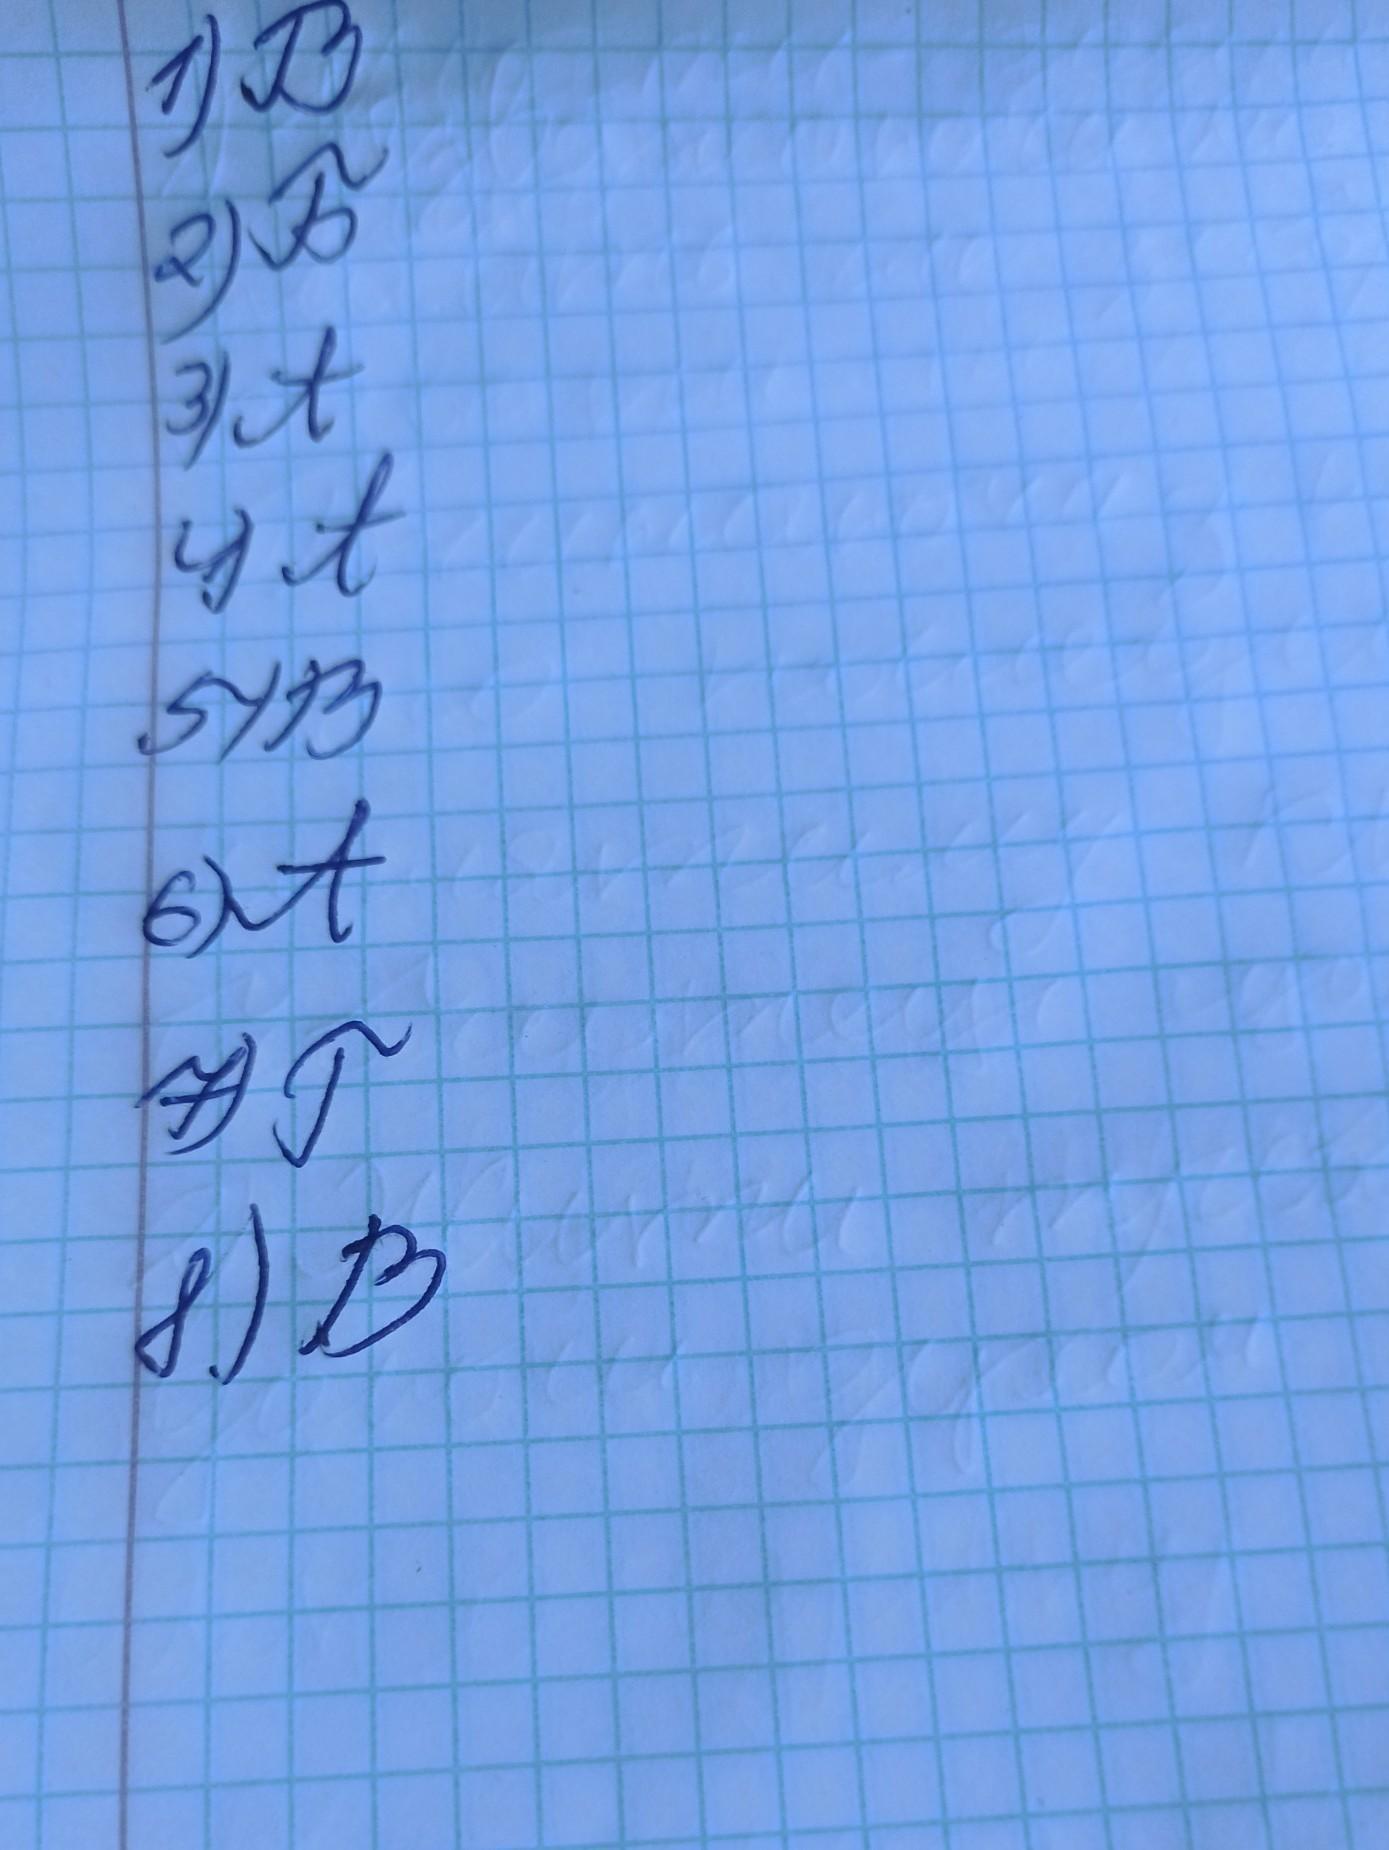 1) В
2) Б
3) А
4) А
5) В
6) А
7) Г
8.) В